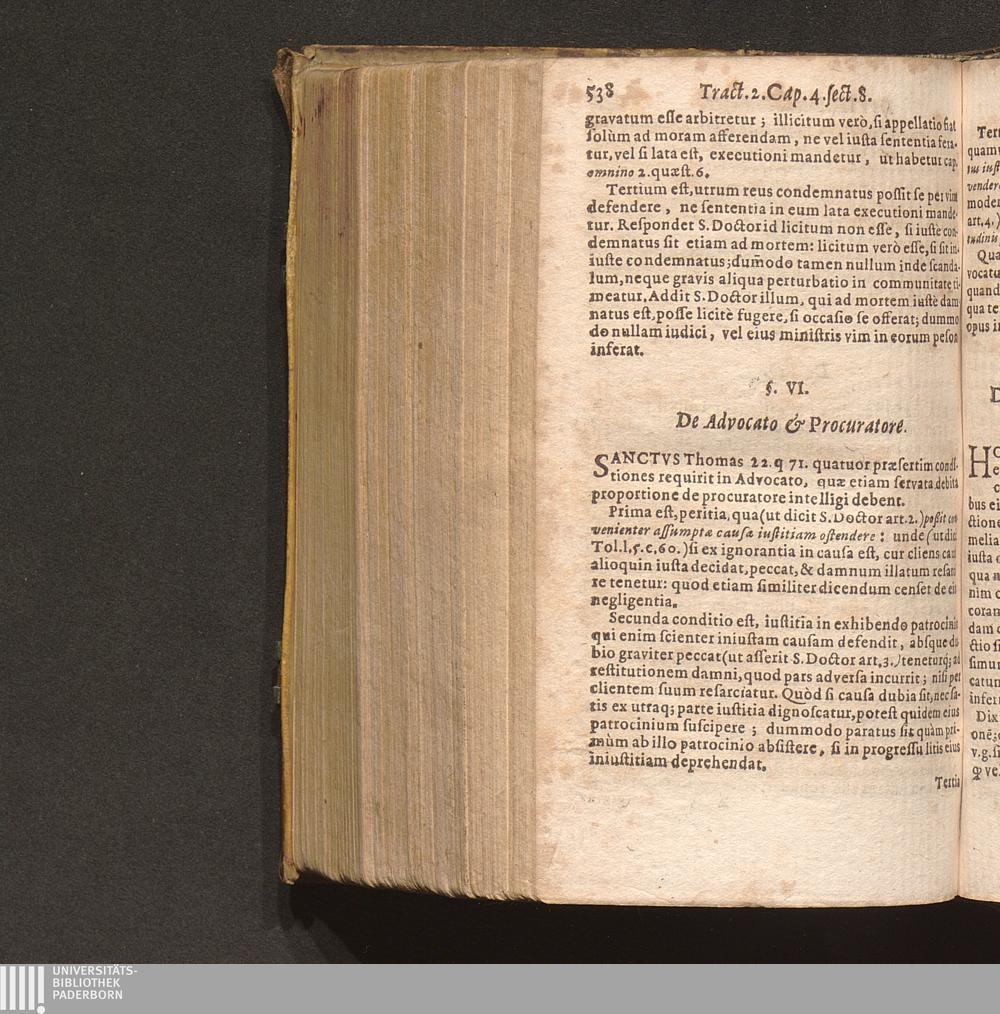 538 Tract.2.Cap.4.ſect.8.
gravatum eſſe arbitretur ; illicitum verò, ſi appellatio fiat
ſolùm ad moram afferendam , ne vel iuſta ſententia fera-
tur, vel ſi lata eſt, executioni mandetur , ut habetur cap.
omnino 2.quæſt.6.
Tertium eſt, utrum reus condemnatus poſſit ſe per vim
defendere , ne ſententia in eum lata executioni mande-
tur. Reſpondet S. Doctor id licitum non eſſe , ſi iuſtè con-
demnatus ſit etiam ad mortem: licitum verò eſſe, ſi ſit in-
iuſte condemnatus; dum̄odo tamen nullum inde ſcanda-
lum, neque gravis aliqua perturbatio in communitate ti-
meatur. Addit S. Doctor illum, qui ad mortem iuſtè dam-
natus eſt, poſſe licitè fugere, ſi occaſio ſe offerat; dummo
do nullam iudici, vel eius miniſtris vim in eorum peſon
inferat.
§. VI.
De Advocato & Procuratore.
SANCTVS Thomas 22.q 71. quatuor præſertim condi-
tiones requirit in Advocato, quæ etiam ſervata debita
proportione de procuratore intelligi debent.
Prima eſt, peritia, qua (ut dicit S. Doctor art.2.) poſſit con
venienter aſſumptæ cauſæ iuſtitiam oſtendere : unde (ut dic
Tol.l.5.c.60.) ſi ex ignorantia in cauſa eſt, cur cliens cau
alioquin iuſta decidat, peccat, & damnum illatum reſarci
re tenetur: quod etiam ſimiliter dicendum cenſet de eius
negligentia.
Secunda conditio eſt, iuſtitia in exhibendo patrocinio
qui enim ſcienter iniuſtam cauſam defendit , abſque du
bio graviter peccat (ut aſſerit S. Doctor art.3.) teneturq; ad
reſtitutionem damni, quod pars adverſa incurrit ; niſi per
clientem ſuum reſarciatur. Quòd ſi cauſa dubia ſit, nec ſa-
tis ex utraq; parte iuſtitia dignoſcatur, poteſt quidem eius
patrocinium ſuſcipere ; dummodo paratus ſit quàm pri-
mùm ab illo patrocinio abſiſtere , ſi in progreſſu litis eius
iniuſtitiam deprehendat.
Tertia
UNIVERSITÄTS-
BIBLIOTHEK
PADERBORN